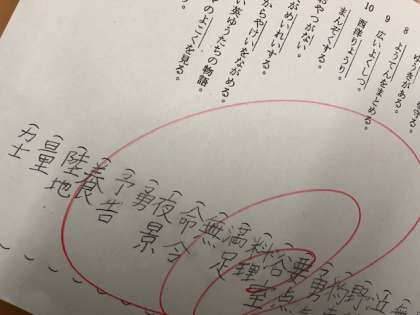 を守る。
ゆうきがある。
8 ようてんをまとめる。
9 広いよくしつ。
10 西洋りょうり。
まんぞくする。
おやつがない。
がめいれいする。
からやけいをながめる。
い英ゆうたちの物語。
マのよこくを見る。
う。
無
泣
野
約
勇
要点
浴室
料理
満足
無
命令
夜景
勇
予告
養
陸地
量
力士